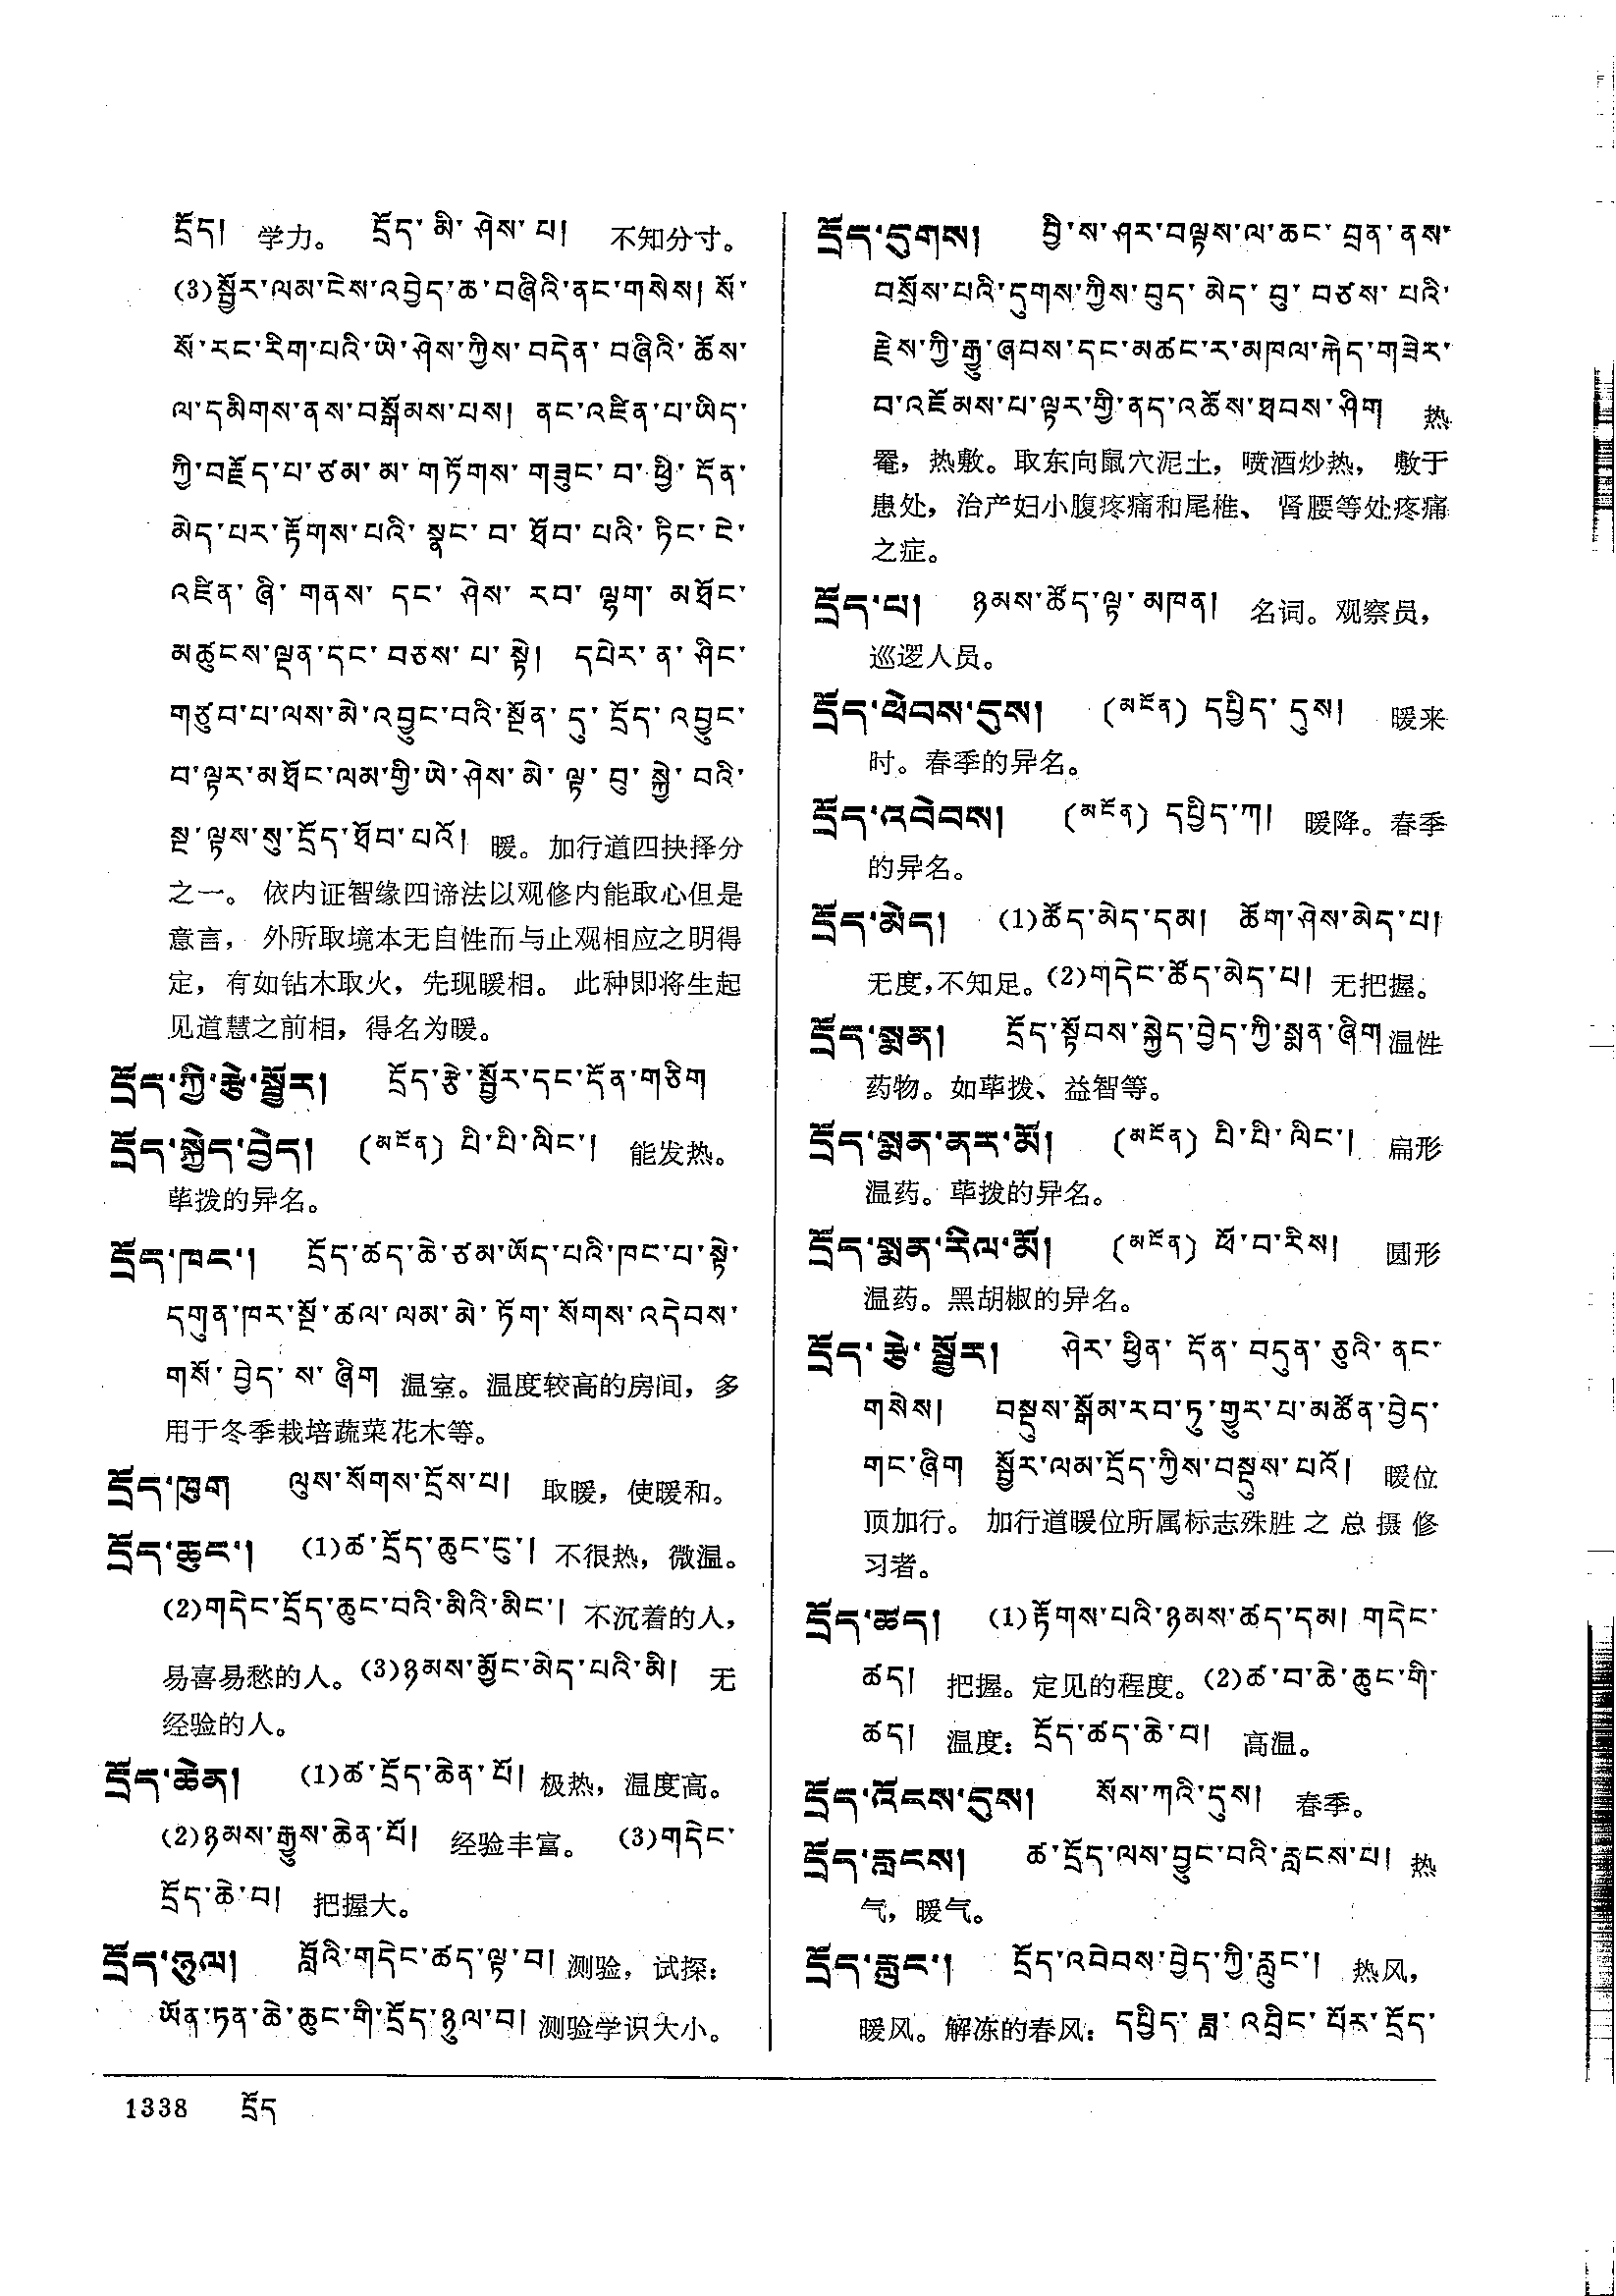 དྲོད། 学力。 དྲོད་མི་ཤེས་པ། 不知分寸。
(3)སྦྱོར་ལམ་ངེས་འབྱེད་ཆ་བཞིའི་ནང་གསེས། སོ་
སོ་རང་རིག་པའི་ཡེ་ཤེས་ཀྱིས་བདེན་བཞིའི་ཆོས་
ལ་དམིགས་ནས་བསྒོམས་པས། ནང་འཛིན་པ་ཡིད་
ཀྱི་བརྗོད་པ་ཙམ་མ་གཏོགས་གཟུང་བ་ཕྱི་དོན་
མེད་པར་རྟོགས་པའི་སྣང་བ་ཐོབ་པའི་ཏིང་ངེ་
འཛིན་ཞི་གནས་དང་ཤེས་རབ་ལྷག་མཐོང་
མཚུངས་ལྡན་དང་བཅས་པ་སྟེ། དཔེར་ན་ཤིང་
གཙུབ་པ་ལས་མེ་འབྱུང་བའི་སྔོན་དུ་དྲོད་འབྱུང་
བ་ལྟར་མཐོང་ལམ་གྱི་ཡེ་ཤེས་མེ་ལྟ་བུ་སྐྱེ་བའི་
སྔ་ལྟས་སུ་དྲོད་ཐོབ་པའོ། 暖。加行道四抉择分
之一。依内证智缘四谛法以观修内能取心但是
意言，外所取境本无自性而与止观相应之明得
定，有如钻木取火，先现暖相。此种即将生起
见道慧之前相，得名为暖。
དྲོད་ཀྱི་རྩེ་སྦྱོར། དྲོད་རྩེ་སྦྱོར་དང་དོན་གཅིག
དྲོད་སྐྱེད་བྱེད། (མངོན) པི་པི་ལིང་། 能发热。
荜拨的异名。
དྲོད་ཁང་། དྲོད་ཚད་ཆེ་ཙམ་ཡོད་པའི་ཁང་པ་སྟེ་
དགུན་ཁར་སྔོ་ཚལ་ལམ་མེ་ཏོག་སོགས་འདེབས་
གསོ་བྱེད་ས་ཞིག 温室。温度较高的房间，多
用于冬季栽培蔬菜花木等。
དྲོད་ཁུག ལུས་སོགས་དྲོས་པ། 取暖，使暖和。
དྲོད་ཆུང་། (1)ཚ་དྲོད་ཆུང་ངུ་། 不很热，微温。
(2)གདེང་དྲོད་ཆུང་བའི་མིའི་མིང་། 不沉着的人，
易喜易愁的人。(3)ཉམས་མྱོང་མེད་པའི་མི། 无
经验的人。
དྲོད་ཆེན། (1)ཚ་དྲོད་ཆེན་པོ། 极热，温度高。
(2)ཉམས་རྒྱུས་ཆེན་པོ། 经验丰富。 (3)གདེང་
དྲོད་ཆེ་བ། 把握大。
དྲོད་ཉུལ། བློའི་གདེང་ཚད་ལྟ་བ། 测验，试探：
ཡོན་ཏན་ཆེ་ཆུང་གི་དྲོད་ཉུལ་བ། 测验学识大小。
དྲོད་དུགས། བྱི་ས་ཤར་བལྟས་ལ་ཆང་བྲན་ནས་
བསྲོས་པའི་དུགས་ཀྱིས་བུད་མེད་བུ་བཙས་པའི་
རྗེས་ཀྱི་རྒྱུ་ཞབས་དང་མཚང་ར་མཁལ་རྐེད་གཟེར་
བ་འཇོམས་པ་ལྟར་གྱི་ནད་འཆོས་ཐབས་ཤིག 热
罨，热敷。取东向鼠穴泥土，喷酒炒热，敷于
患处，治产妇小腹疼痛和尾椎、肾腰等处疼痛
之症。
དྲོད་པ། ཉམས་ཚོད་ལྟ་མཁན། 名词。观察员，
巡逻人员。
དྲོད་ཕེབས་དུས། (མངོན) དཔྱིད་དུས། 暖来
时。春季的异名。
དྲོད་འབེབས། (མངོན) དཔྱིད་ཀ། 暖降。春季
的异名。
དྲོད་མེད། (1)ཚོད་མེད་དམ། ཆོག་ཤེས་མེད་པ།
无度，不知足。(2)གདེང་ཚོད་མེད་པ། 无把握。
དྲོད་སྨན། དྲོད་སྟོབས་སྐྱེད་བྱེད་ཀྱི་སྨན་ཞིག 温性
药物。如荜拨、益智等。
དྲོད་སྨན་ནར་མོ། (མངོན) པི་པི་ལིང་། 扁形
温药。荜拨的异名。
དྲོད་སྨན་རིལ་མོ། (མངོན) ཕོ་བ་རིས། 圆形
温药。黑胡椒的异名。
དྲོད་རྩེ་སྦྱོར། ཤེར་ཕྱིན་དོན་བདུན་ཅུའི་ནང་
གསེས། བསྡུས་སྒོམ་རབ་ཏུ་གྱུར་པ་མཚོན་བྱེད་
གང་ཞིག སྦྱོར་ལམ་དྲོད་ཀྱིས་བསྡུས་པའོ། 暖位
顶加行。加行道暖位所属标志殊胜之总摄修
习者。
དྲོད་ཚད། (1)རྟོགས་པའི་ཉམས་ཚད་དམ། གདེང་
ཚད། 把握。定见的程度。(2)ཚ་བ་ཆེ་ཆུང་གི་
ཚད། 温度：དྲོད་ཚད་ཆེ་བ། 高温。
དྲོད་འོངས་དུས། སོས་ཀའི་དུས། 春季。
དྲོད་རླངས། ཚ་དྲོད་ལས་བྱུང་བའི་རླངས་པ། 热
气，暖气。
དྲོད་རླུང་། དྲོད་འབེབས་བྱེད་ཀྱི་རླུང་། 热风，
暖风。解冻的春风：དཔྱིད་ཟླ་འབྲིང་པོར་དྲོད་
1338 དྲོད